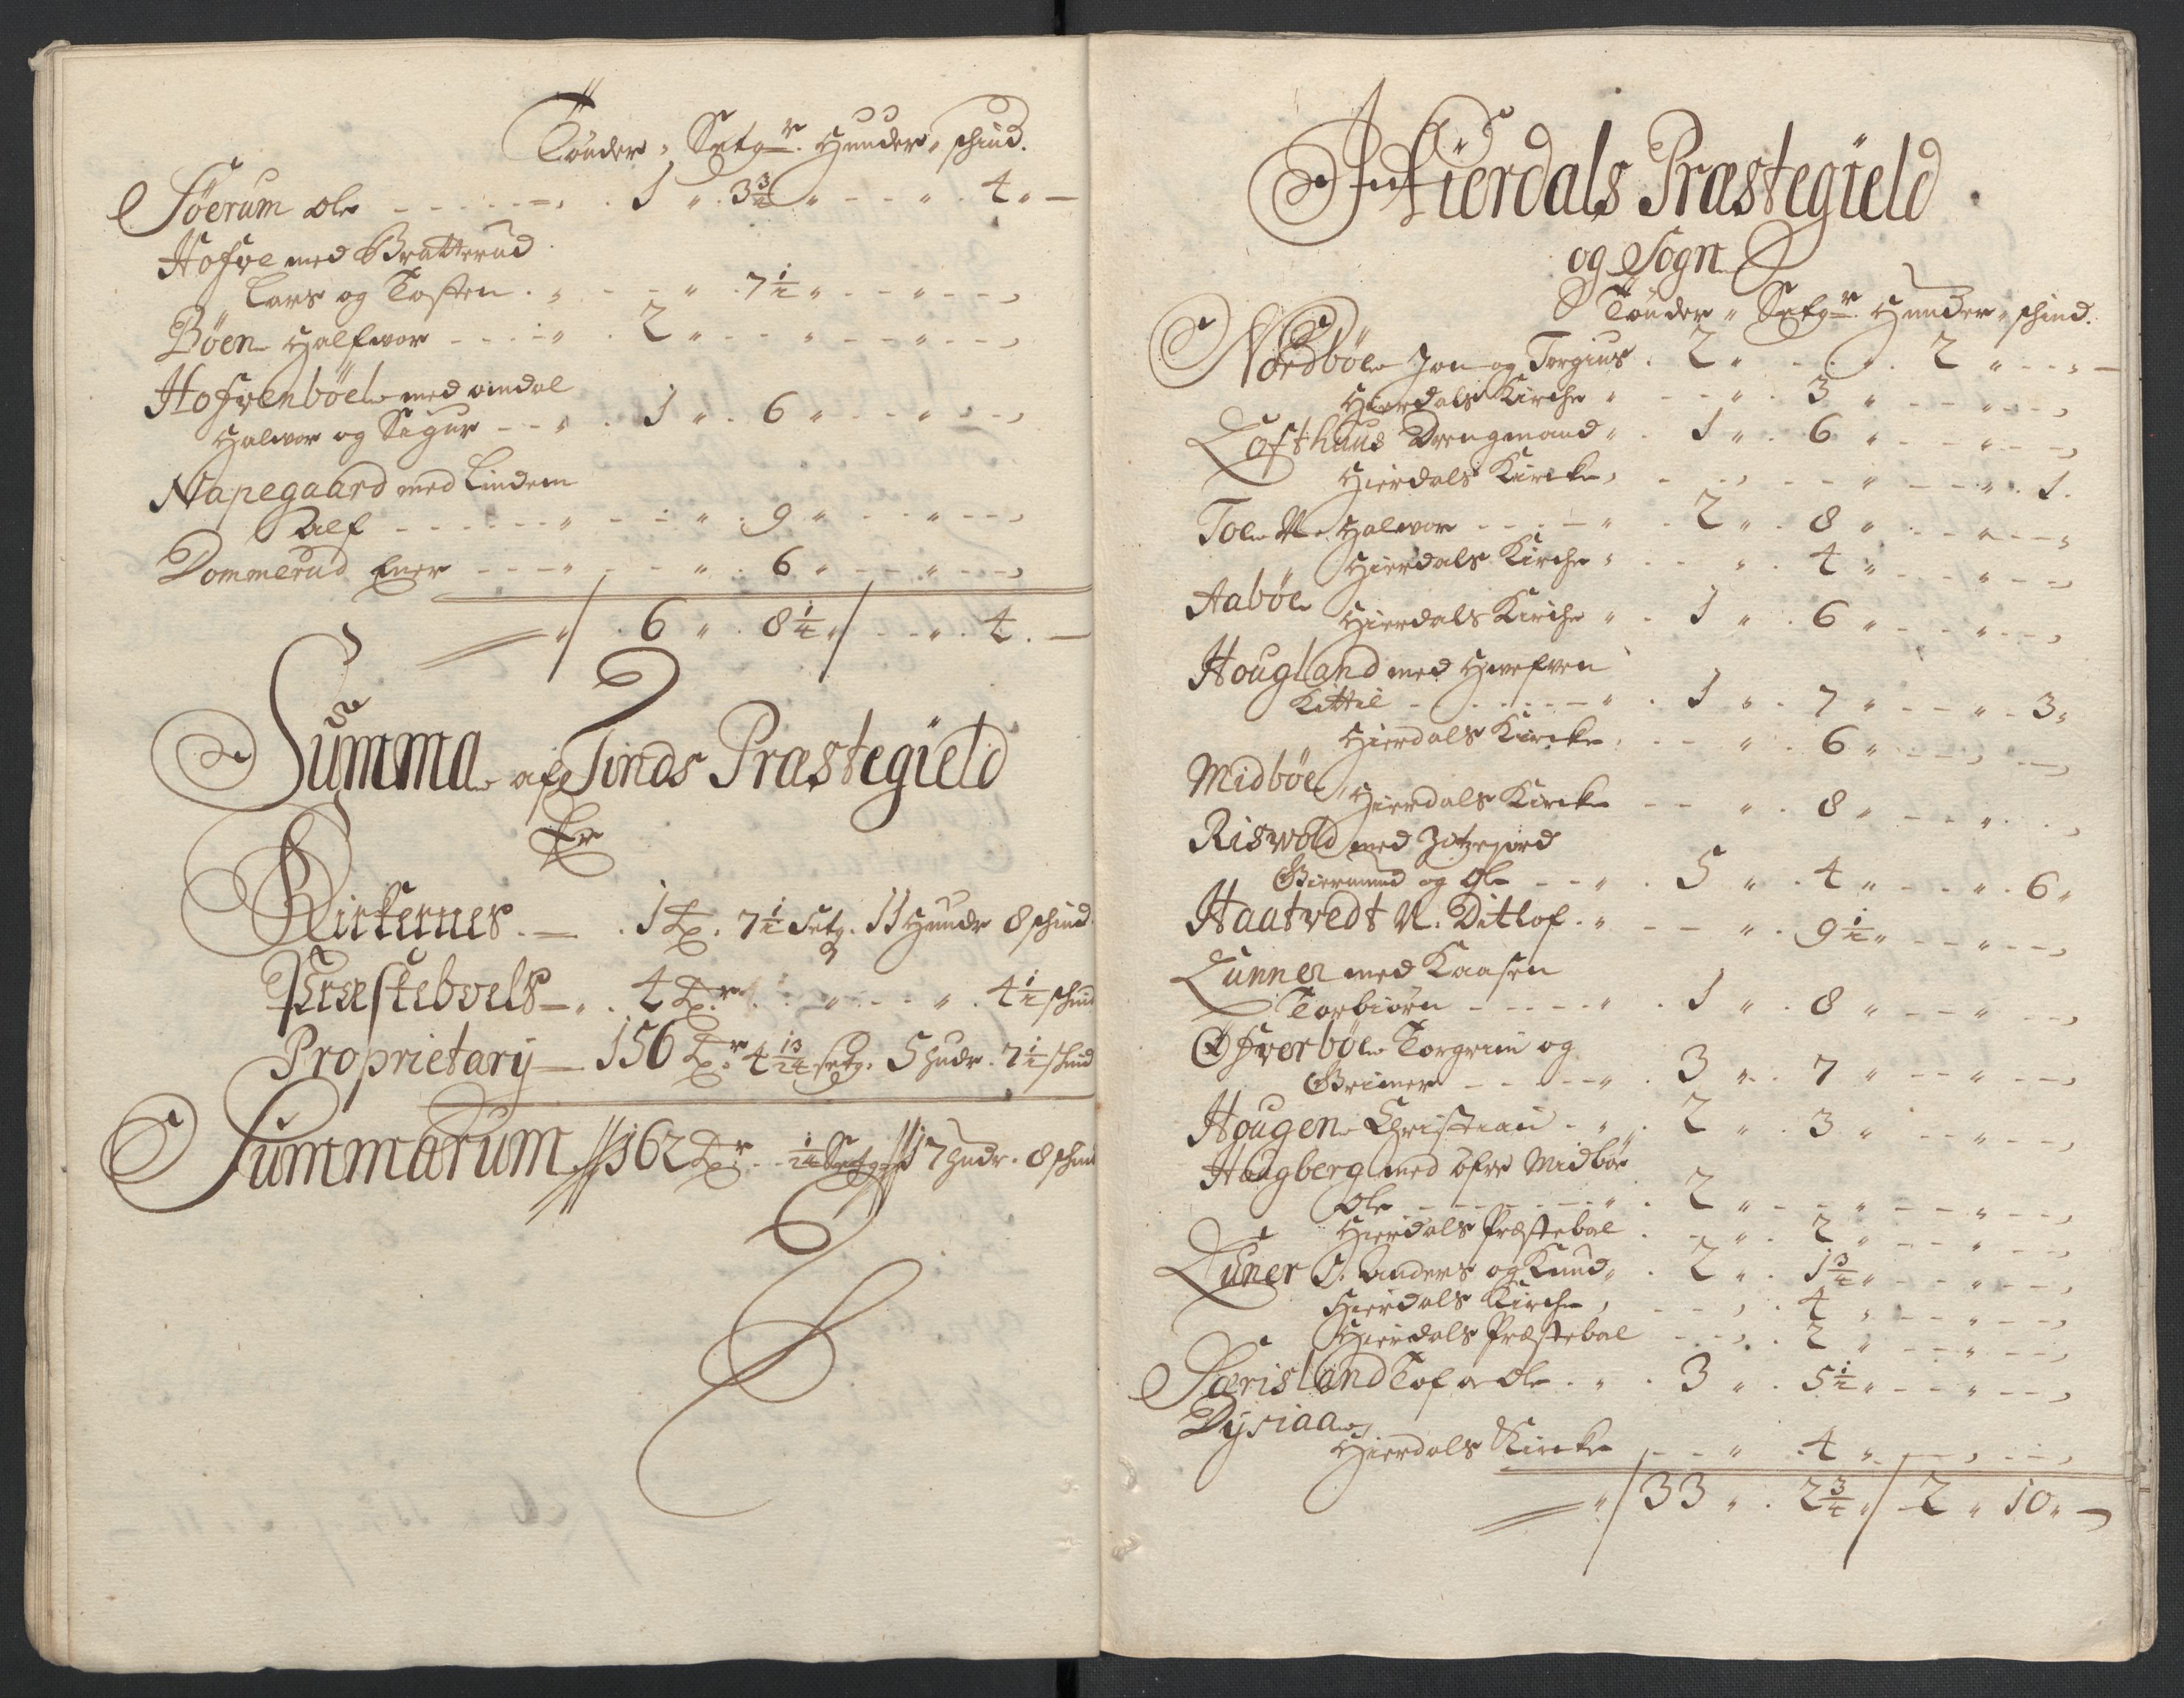 Tönder " Setgr. Hunder " schind.
Söerum Ole - - - - - - " . 1 " . 3 3/4 " - - " . 4 " -
Hofve med Bratterud
Lars og Tosten . " - - " . 7 1/2 " - - " - - ,
Böen Halfwor - - - - " . 2 " - - " - - " - - ,
Hofvenböele med Omdal
Halwor og Sigur - - " . 1 " . 6 " - - " - - ,
Napegaard med Lindem
Alf - - - - - - " - - " . 9 " - - " - - ,
Dommerud Ener - - - " - - " . 6 " - - " - - ,
" / . 6 " . 8 1/4 " / - - " . 4 . -
Summa af Tinds Præstegield
Er
Kirkernes . - . 1 Tr. 7 1/2 Setg. 11 Hundr 8 schind.
Præstebvels - " . 4 Tr. " - - " . 4 1/2 schind
Proprietary - 156 Tr. 4 13/24 setg. 5 Hudr. 7 1/2 schind
Summarum // 162 Tr. - 1/24 Setg // 17 Hudr. 8 schind
Hierdals Præstegield
og Sogn
Tönder " Setgr. Hunder " schind.
Nordböe Jon og Torgius . 2 " - - " . 2 " - - " -
Hierdals Kirche " - - " . 3 " - - " - - ,
Lofthuus Drengmand " . 1 " . 6 " - - " - - ,
Hierdals Kircke , - - , - - " - - " . 1 .
Toe N. Halwor - - - - " . 2 " . 8 " - - " - - "
Hierdals Kirche " - - " . 4 " - - " - - ,
Aaböe
Hierdals Kirche " . 1 " . 6 " - - " - - ,
Hougland med Hwefven
Kittil - - - - - - " . 1 " . 7 " - - " . 3 "
Hierdals Kircke , - - " . 6 " - - , - - ,
Midböe
Hierdals Kircke - - " . 8 " - - " - - ,
Riswold med
Giermund og Ole - - " . 5 " . 4 " - - " . 6 "
Haatvedt N. Ditlof . " - - " . 9 1/2 " - - " - - ,
Lunner med Kaasen
Torbiörn - - - - " . 1 " . 8 " - - " - - ,
Öfverböe Torgrim og
Grimer - - - - - " . 3 " . 7 " - - " - - ,
Hougen Christian - " . 2 " . 3 " - - " - - ,
Haugberg med öfre Midböe
Ole - - - - - - " . 2 " - - " - - " - - ,
Hierdals Præstebol . - " . 2 " - - " - - ,
Luner S. Anders og Knud " . 2 " . 1 3/4 " - - " - - ,
Hierdals Kirche , - - , . 4 " - - " - - ,
Hierdals Præstebol - - , . 2 " - - " - - ,
Særisland Tof a Ole . " . 3 " . 5 1/2 " - - " - - ,
Dysiaae
Hierdals Kircke - - " . 4 " - - , - - ,
" / 33 " . 2 3/4 " / 2 " 10 " -